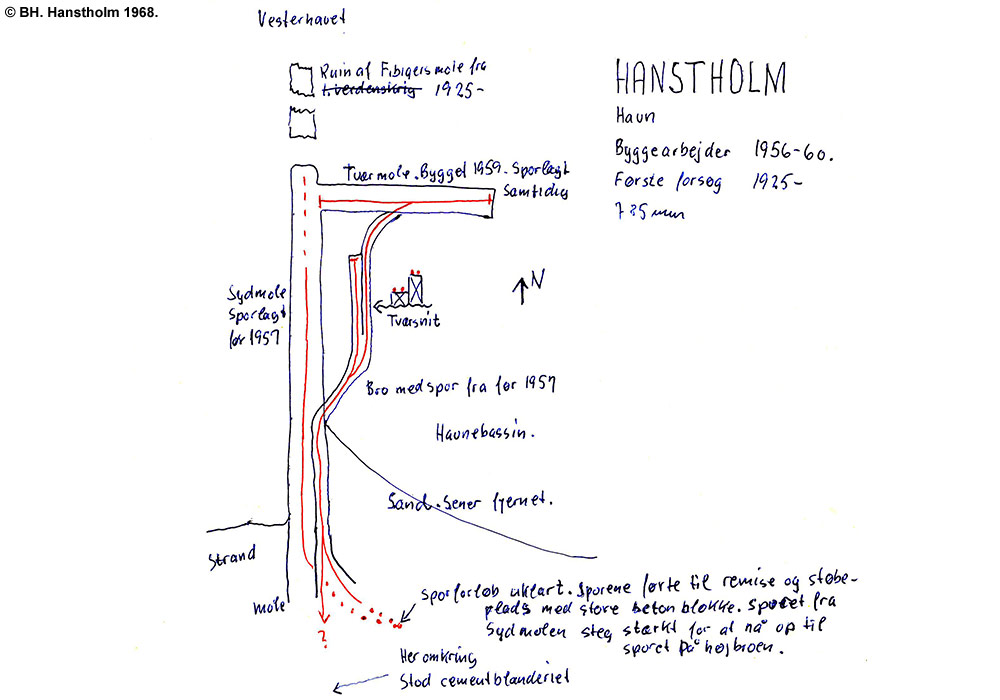 © BH. Hanstholm 1968.
Vesterhavet
Ruin af Fibigers mole fra
1. verdenskrig 1925-
HANSTHOLM
Havn
Byggearbejder 1956-60.
Første forsøg 1925-
785 mm
Tværmole. Bygget 1959. Sporlagt
Samtidig
N
Sydmole
Sporlagt
før 1957
Tværsnit
Bro med spor fra før 1957
Havnebassin.
Sand. Sener fjernet.
Strand
mole
?
Sporforløb uklart. Sporene førte til remise og støbe-
plads med store beton blokke. Sporet fra
Sydmolen steg stærkt for at nå op til
sporet på højbroen.
Her omkring
Stod cementblanderiet